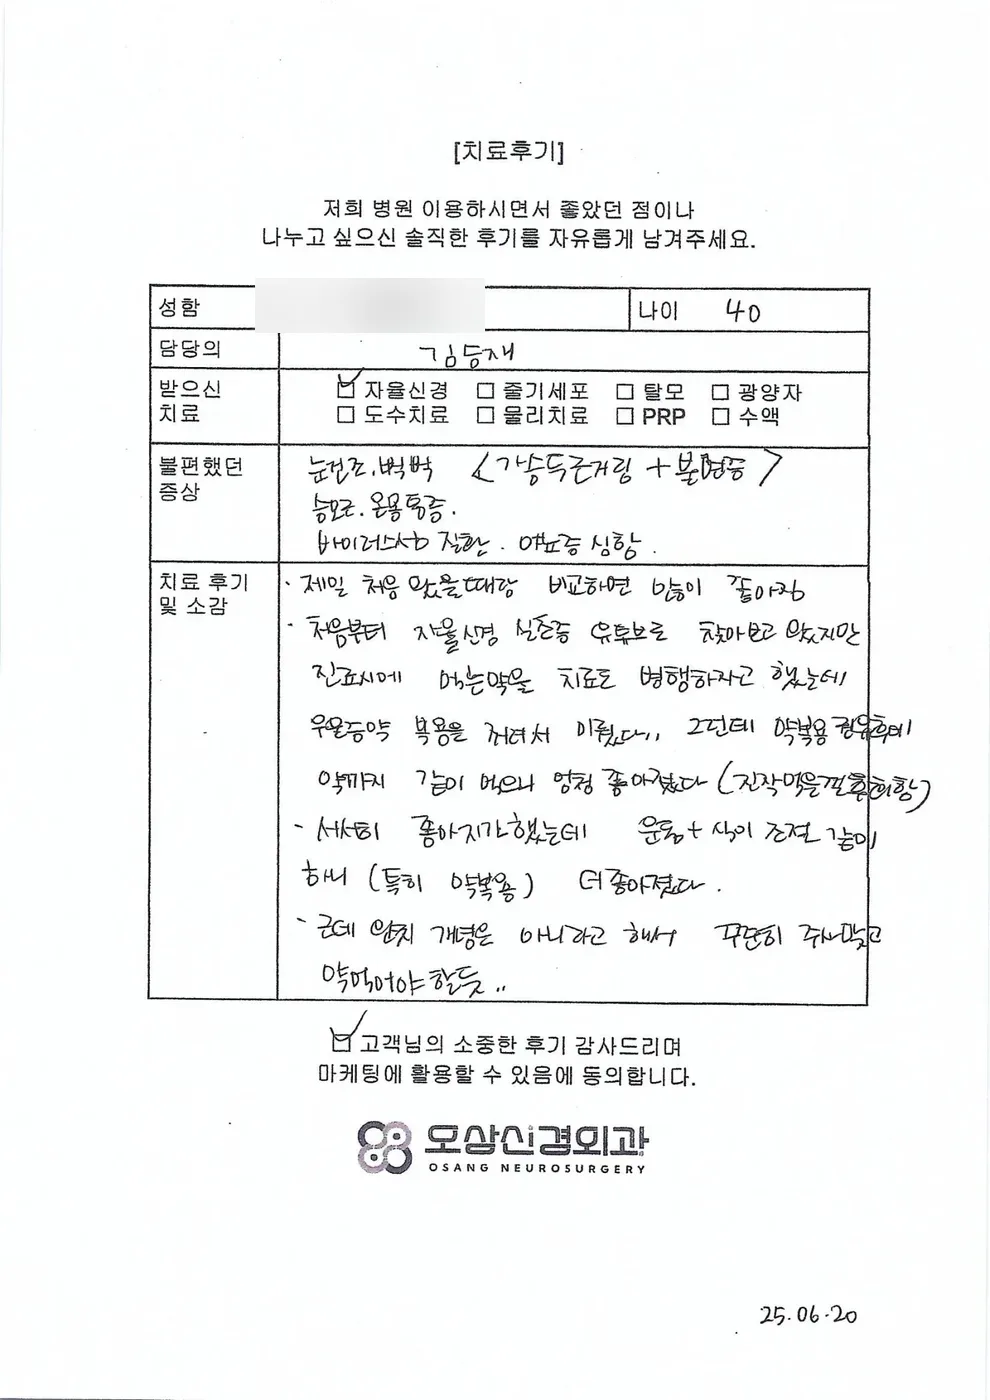 [치료후기]
저희 병원 이용하시면서 좋았던 점이나
나누고 싶으신 솔직한 후기를 자유롭게 남겨주세요.
성함
나이 40
담당의 김등재
받으신 치료
자율신경 줄기세포 탈모 광양자
도수치료 물리치료 PRP 수액
불편했던 증상
눈건조, 빡빡 <가슴두근거림 + 불면증>
승모근. 온몸통증.
바이러스성 질환. 심함.
치료 후기 및 소감
· 제일 처음 왔을때랑 비교하면 많이 좋아짐
· 처음부터 자율신경 실조증 유튜브로 찾아보고 왔지만
진료시에 먹는약을 치료도 병행하자고 했는데
우울증약 복용을 꺼려서 미뤘다,, 그런데 약복용 권유후에
약까지 같이 먹으니 엄청 좋아졌다 (진작먹을껄 후회함)
- 서서히 좋아지가 했는데 운동 + 식이 조절 같이
하니 (특히 약복용) 더 좋아졌다.
- 근데 완치 개념은 아니라고 해서 꾸준히 주사맞고
약먹어야 할듯..
고객님의 소중한 후기 감사드리며
마케팅에 활용할 수 있음에 동의합니다.
오상신경외과
OSANG NEUROSURGERY
25.06.20